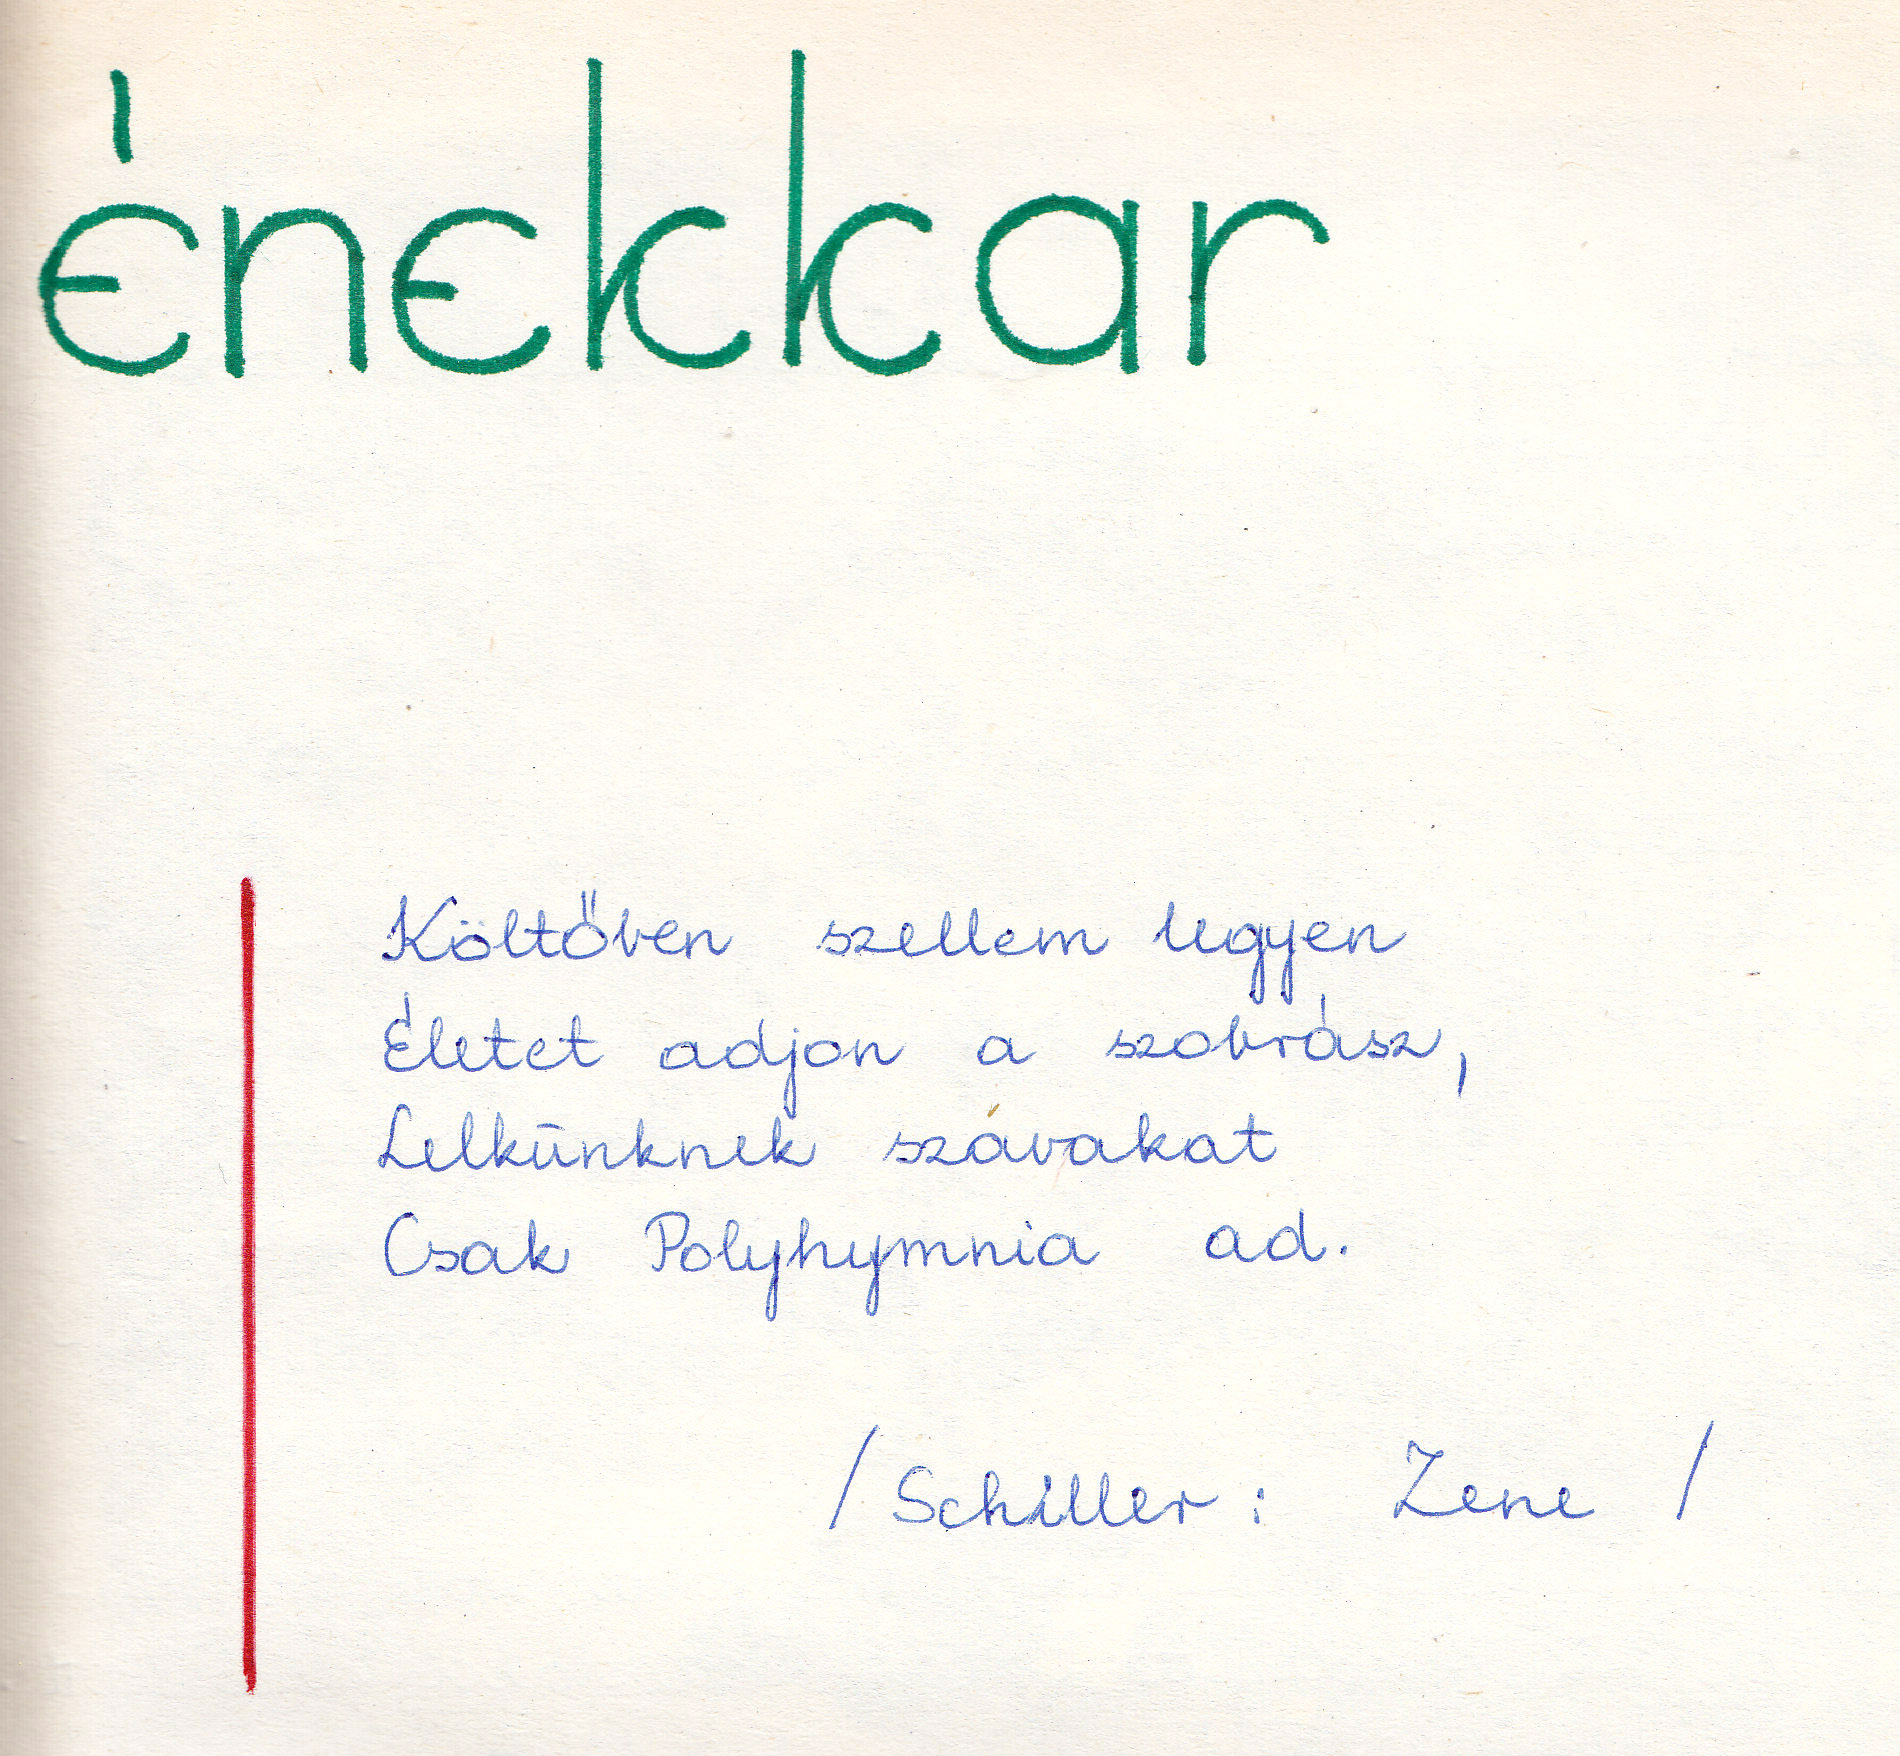 énekkar
Költőben szellem legyen
Életet adjon a szobrász,
Lelkünknek szávakat
Csak Polyhymnia ad.
/Schiller: Zene /